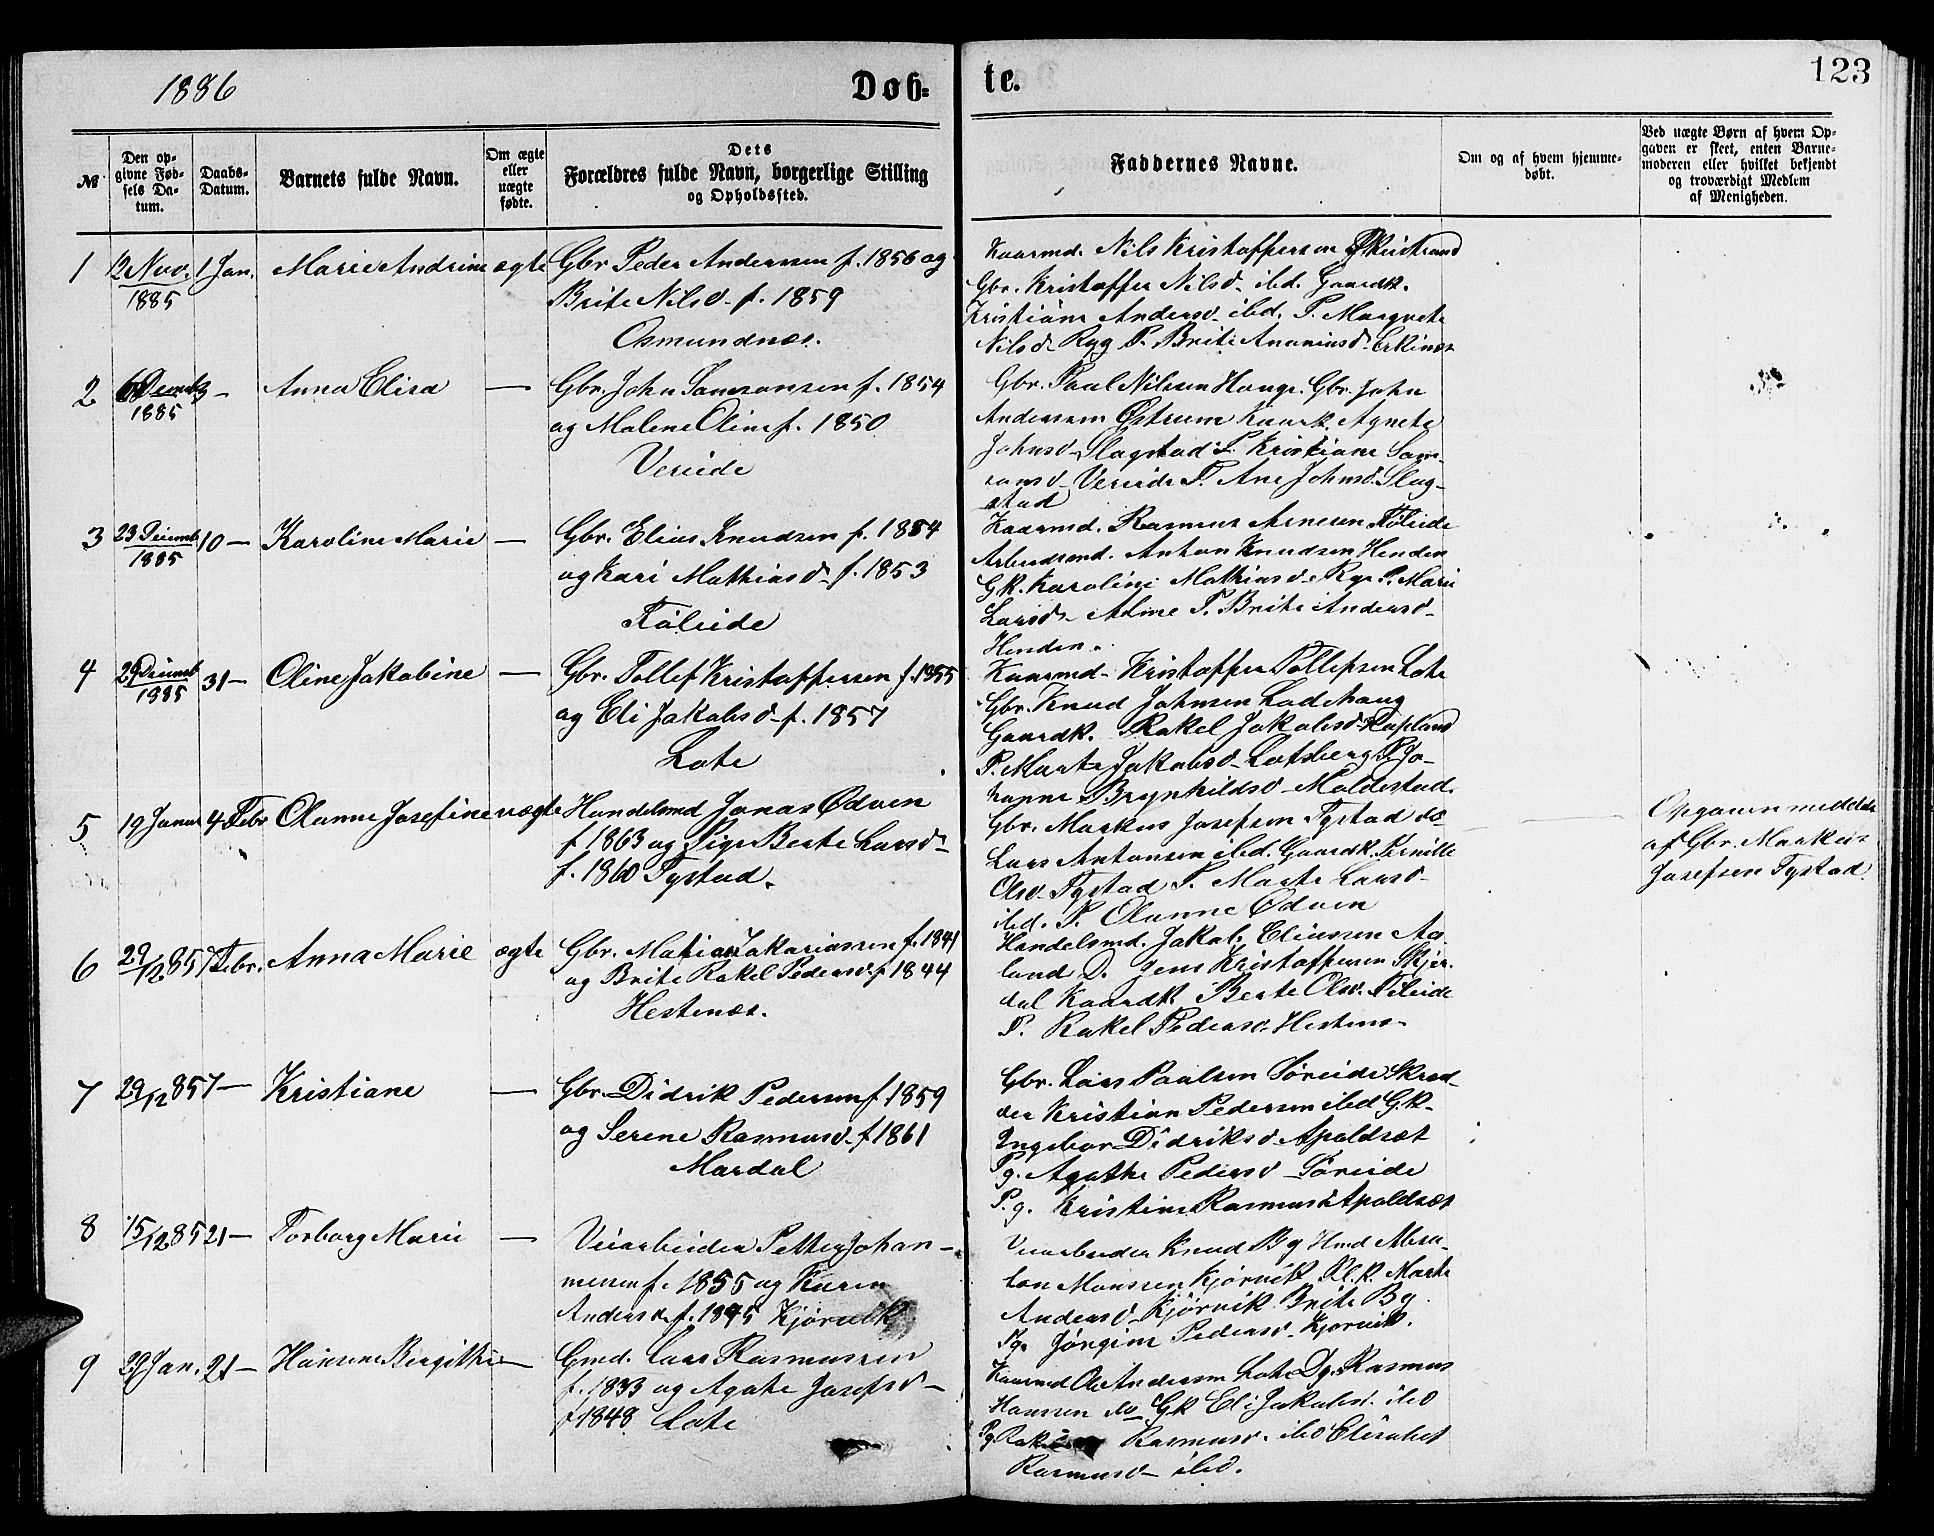 1886
Døb=
te.
123
№
Den op-
givne Fød-
sels Da-
tum.
Daabs-
Datum.
Barnets fulde Navn.
Om ægte
eller
uægte
fødte.
Dets
Forældres fulde Navn, borgerlige Stilling
og Opholdssted.
Faddernes Navne.
Om og af hvem hjemme-
døbt.
Ved uægte Børn af hvem Op-
gaven er skeet, enten Barne-
moderen eller hvilket bekjendt
og troværdigt Medlem
af Menigheden.
1 2 Nov. 1885 1 Jan. Marie Andrine ægte Gbr. Peder Anderssen f. 1856 og
Brite Nilsd. f. 1859
Osmundnes.
Kaarmd. Nils Kristoffersen
Gbr. Kristoffer Nilsd. ibd. Gaardk.
Kristiane Andersd. ibd. P. Margrete
Nilsd. Ryg P. Brite Ananiasd.
2 1885 3 — Anna Elisa — Gbr. John Samsonsen f. 1854
og Malene Oline f. 1850
Vereide
Gbr. Paul Nilssen Hauge. Gbr. John
Anderssen Østrem Kaark. Agnete
Johnsd. Slagstad P. Kristiane Sam-
sonsd. Vereide P. Ane Johnsd. Slag-
stad
3 23 Decemb 1885 10 — Karoline Marie — Gbr. Elias Knudsen f. 1854
og Kari Mathiasd. f. 1853
Føleide
Kaarmd. Rasmus Arnesen Føleide
Arbeidsmd. Anton Knudsen Henden
Gk. Karoline Mathiasd. Ryg P. Marie
Larsd. Alme P. Brite Andersd.
Henden.
4 29 Decemb 1885 31 — Oline Jakobine — Gbr. Tollef Kristoffersen f. 1855
og Eli Jakobsd. f. 1857
Lote
Kaarmd. Kristoffer Tollefsen Lote
Gbr. Knud Johnsen Ladehaug
Gaardk. Rakel Jakobsd.
P. Marte Jakobsd. Lotsberg P. Jo-
hanne Brynhildsd. Moldestad.
5 19 Januar 4 Febr. Olanne Josefine uægte Handelsmd Jonas Ødven
f 1863 og Pige Berte Larsd.
f. 1860 Tystad.
Gbr. Markus Josefsen Tystad do
Lars Antonsen ibd. Gaardk. Pernille
Olsd. Tystad P. Marte Larsd.
ibd. P. Olanne Ødven
Opgaven meddelt
af Gbr. Markus
Josefsen Tystad.
6 29/12 85 7 Febr. Anna Marie ægte Gbr. Matias Zakariassen f. 1841
og Brite Rakel Pedersd. f 1844
Hestenes.
Handelsmd. Jakob Eliassen Aa-
land D. Jens Kristoffersen Skjer-
dal Kaardk. Berte Olsd. Føleide
P. Rakel Pedersd. Hestenes.
7 29/12 85 7 — Kristiane — Gbr. Didrik Pedersen f 1859
og Serene Rasmusd. f 1861
Mardal
Gbr. Lars Paulsen Søreide Skræd-
der Kristian Pedersen ibd G.k.
Ingebor Didriksd. Apaldset
Pg. Agathe Pedersd. Søreide
P.g. Kristine Rasmusd. Apaldset
8 15/12 85 21 — Torborg Marie — Veiarbeider Petter Johan-
nessen f. 1855 og Karen
Andersd. f. 1845 Kjørvik
Veiarbeider Knud By Hmd Absa-
lon Monssen Kjørvik Pl.k. Marte
Andersd. Kjørvik. Brite By.
Pg. Jørgine Pedersd. Kjørvik.
9 29 Jan. 21 — Hansine Bergithe — Gmd. Lars Rasmussen
f. 1833 og Agate Josefsd.
f 1848 Lote
Kaarmd Ole Anderssen Lote Dg. Rasmus
Hanssen do Gk Eli Jakobsd. ibd
Pg. Rasmusd. ibd Elisabet
Rasmusd. ibd.